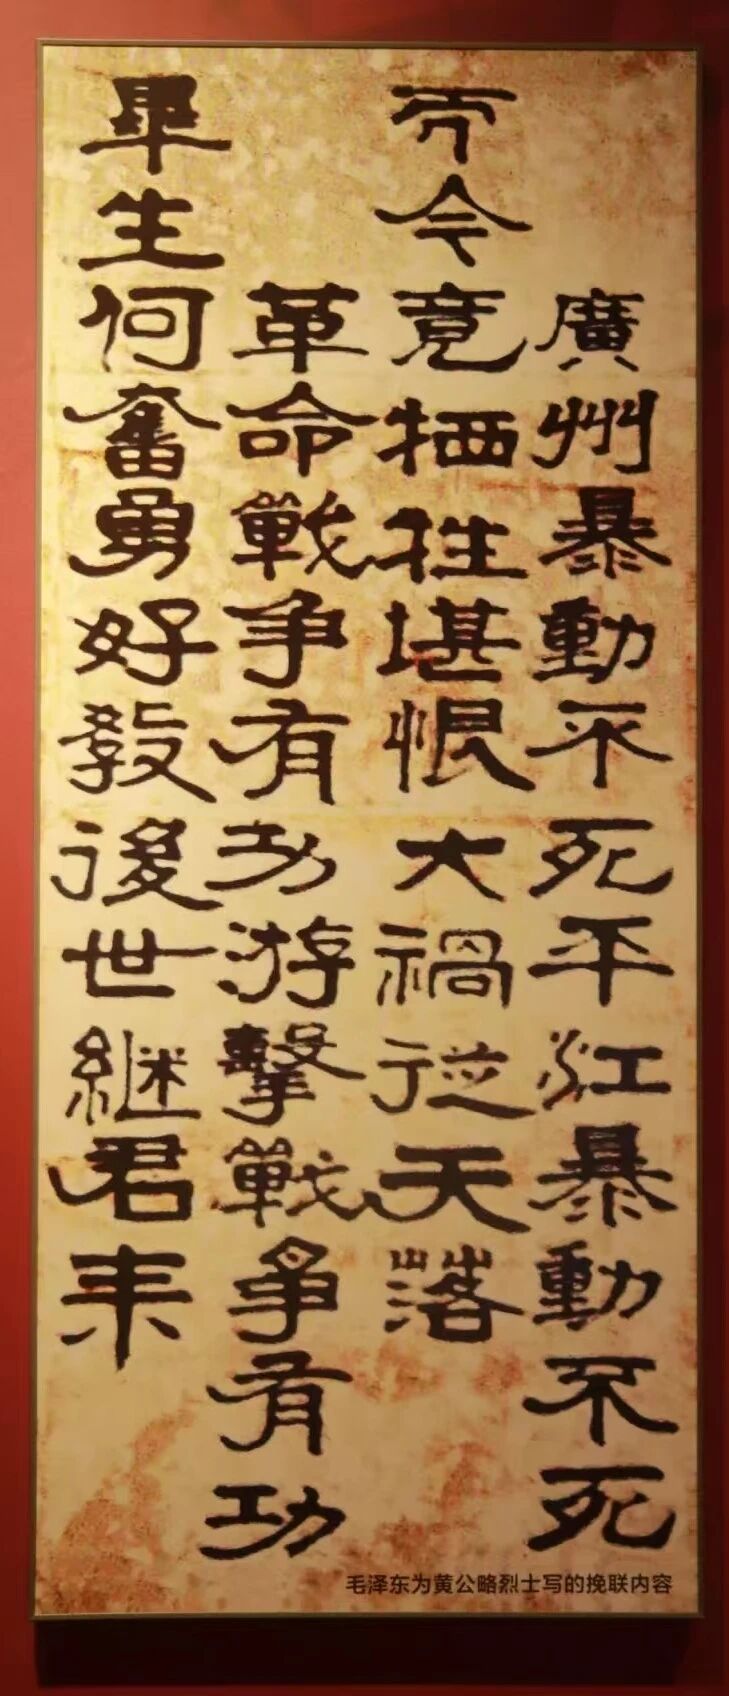 廣州暴動不死平江暴動不死
而今竟牺牲堪恨大禍從天落
革命戰争有功游擊戰爭有功
畢生何奮勇好教後世継君来
毛泽东为黄公略烈士写的挽联内容